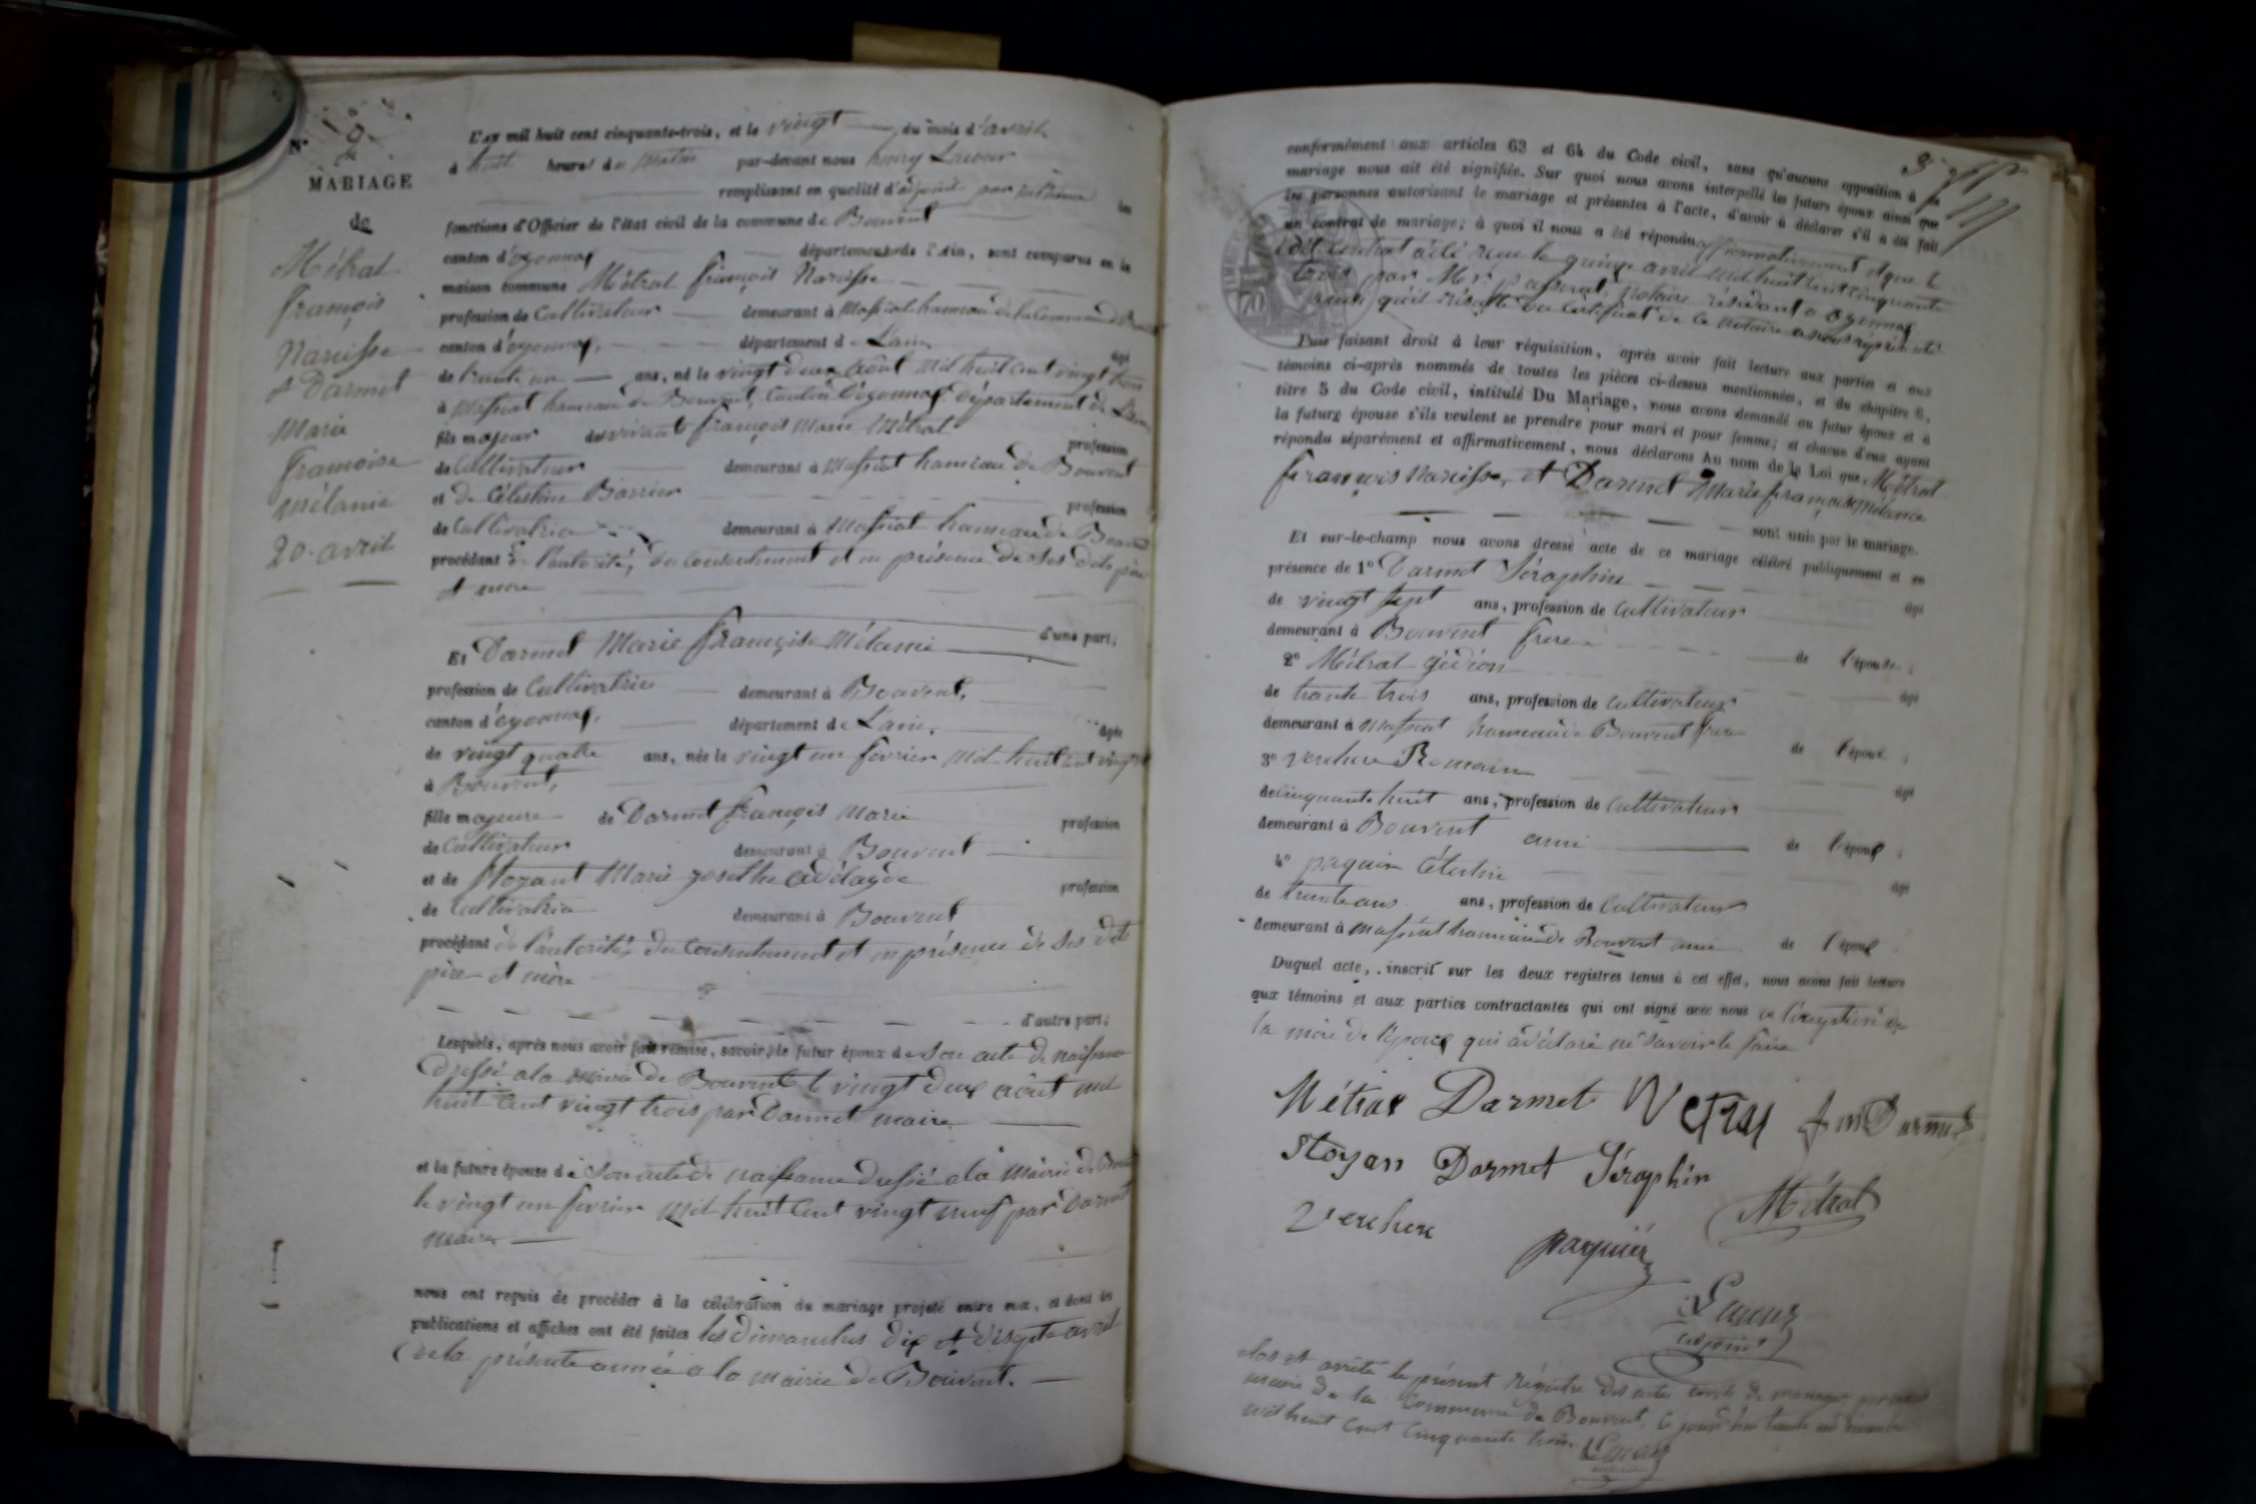 N° 9
MARIAGE
de
Métral
françois
Narcisse
et Darmet
Marie
françoise
mélanie
20 avril
L'an mil huit cent cinquante-trois, et le vingt du mois d'avril
à huit heures du matin par-devant nous
remplissant en qualité d'adjoint les
fonctions d'Officier de l'état civil de la commune de Bouvent
canton d'oyonnax département de l'ain, sont comparus en la
maison commune Métral françois Narcisse
profession de Cultivateur demeurant à Massiat hameau de la commune de
canton d'oyonnax, département de L'ain âgé
de trente un ans, né le vingt deux août mil huit cent vingt trois
à Massiat hameau de Bouvent, Canton d'oyonnax département de L'ain
fils majeur de vivant françois marie Métral profession
de Cultivateur demeurant à Massiat hameau de Bouvent
et de Célestine profession
de Cultivatrice demeurant à Massiat hameau de Bouvent
procédant de l'autorité, du consentement et en présence de ses dits père
et mère
d'une part;
Et Darmet Marie françoise Mélanie
profession de Cultivatrice demeurant à Bouvent,
canton d'oyonnax, département de L'ain, âgée
de vingt quatre ans, née le vingt un février mil huit cent vingt
à Bouvent,
fille majeure de Darmet françois Marie profession
de Cultivateur demeurant à Bouvent
et de Stoyant Marie adélayde profession
de Cultivatrice demeurant à Bouvent
procédant de l'autorité, du consentement et en présence de ses dit
père et mère
d'autre part;
Lesquels, après nous avoir fait remise, savoir, le futur époux de son acte de naissance
dressé a la mairie de Bouvent le vingt deux août mil
huit cent vingt trois par Darmet maire
et la future épouse de son acte de naissance dressé a la mairie de
le vingt un février mil huit cent vingt neuf par Darmet
maire
nous ont requis de procéder à la célébration du mariage projeté entre eux, et dont les
publications et affiches ont été faites les dimanches dix et avril
de la présente année a la mairie de Bouvent.
conformément aux articles 63 et 64 du Code civil, sans qu'aucune opposition à ce
mariage nous ait été signifiée. Sur quoi nous avons interpellé les futurs époux ainsi que
les personnes autorisant le mariage et présentes à l'acte, d'avoir à déclarer s'il a été fait
un contrat de mariage; à quoi il nous a été répondu affirmativement et que le
dit contrat a été reçu le quinze avril mil huit cent cinquante
trois par Mr notaire résidant a oyonnax
qu'il résulte du Certificat de ce notaire
Puis faisant droit à leur réquisition, après avoir fait lecture aux parties et aux
témoins ci-après nommés de toutes les pièces ci-dessus mentionnées, et du chapitre 6,
titre 5 du Code civil, intitulé Du Mariage, nous avons demandé au futur époux et à
la future épouse s'ils veulent se prendre pour mari et pour femme; et chacun d'eux ayant
répondu séparément et affirmativement, nous déclarons au nom de la Loi que Métral
françois Narcisse, et Darmet Marie françoise Mélanie
sont unis par le mariage.
Et sur-le-champ nous avons dressé acte de ce mariage célébré publiquement et en
présence de 1° Darmet Séraphin âgé
de vingt sept ans, profession de Cultivateur
demeurant à Bouvent frere de l'épouse;
2° Métral gédéon âgé
de trente trois ans, profession de cultivateur
demeurant à Massiat hameau de Bouvent frere de l'époux;
3° Verchere Romain âgé
de cinquante huit ans, profession de Cultivateur
demeurant à Bouvent ami de l'époux;
4° paquier Célestin âgé
de trente ans ans, profession de Cultivateur
demeurant à Massiat hameau de Bouvent ami de l'époux.
Duquel acte, inscrit sur les deux registres tenus à cet effet, nous avons fait lecture
aux témoins et aux parties contractantes qui ont signé avec nous a l'exception de
la mère de l'époux qui a déclaré ne savoir le faire
Métral Darmet fm Darmet
Stoyan Darmet Séraphin
Métral
Verchere paquier
adjoint
clos et arrêté le présent registre des actes de mariage par nous
maire de la Commune de Bouvent, ce jourd'hui trente un décembre
mil huit cent cinquante trois